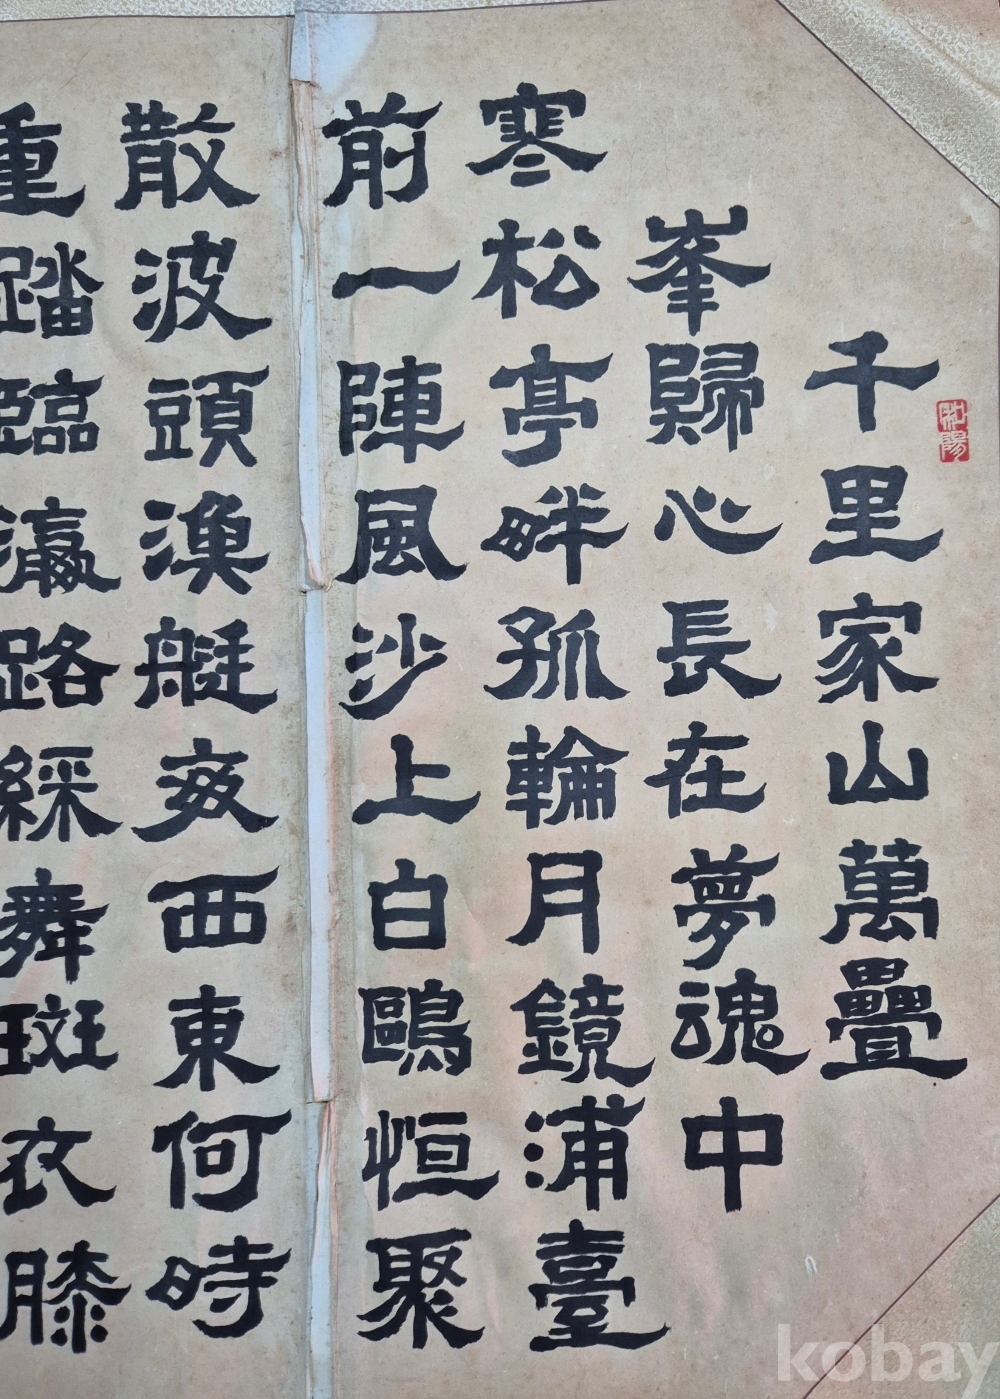 千里家山萬疊
峯歸心長在夢魂中
寒松亭畔孤輪月鏡浦臺
前一陣風沙上白鷗恒聚
散波頭漁艇每西東何時
重踏臨瀛路綵舞斑衣膝
kobay